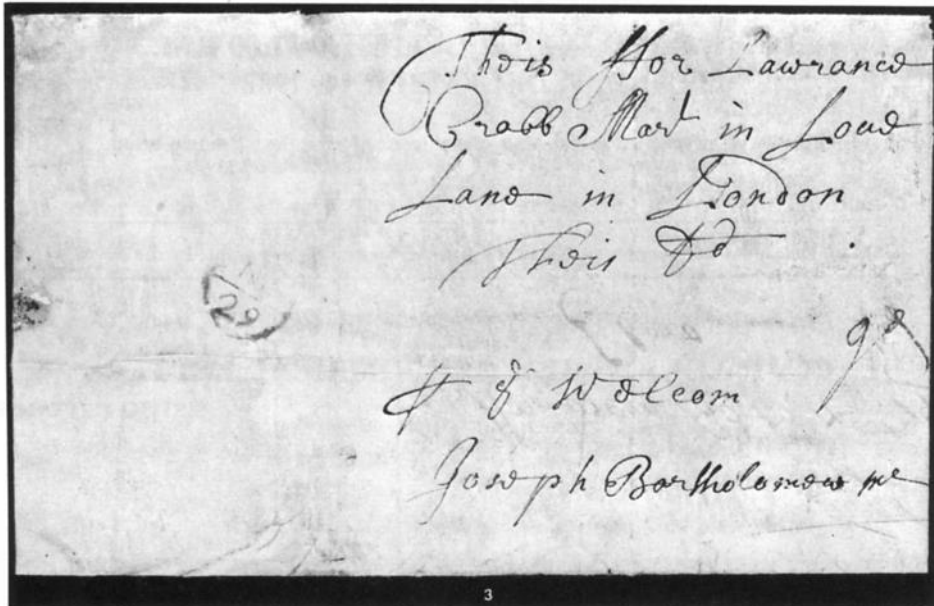 Theis ffor Lawrance
Crabb Mart in Loue
Lane in London
Theis dd
29
9d
ye Welcom
Joseph Bartholomew mr
3